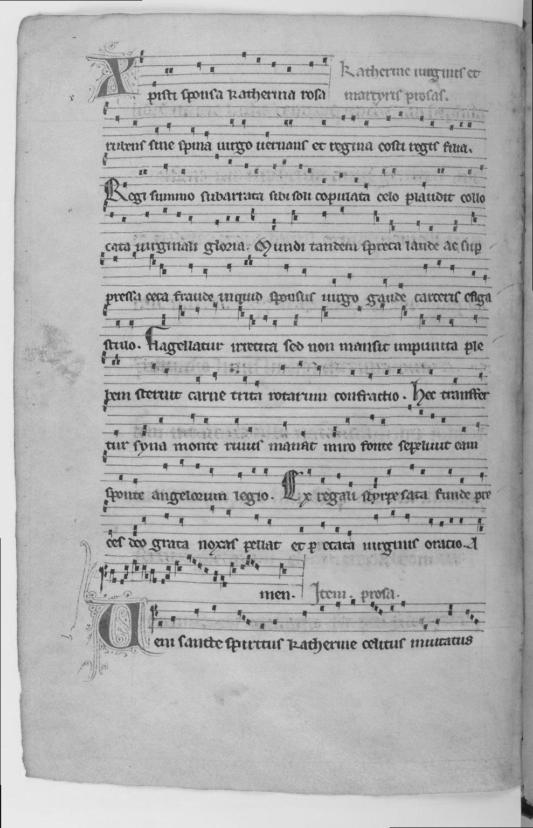 Katherine virginis et
martyris prosas.
Xpisti sponsa katherina rosa
rubens sine spina virgo vernans et regina
Regi summo subarrata sibi soli copulata celo plaudit collo
cata virginali gloria. Mundi tandem spreta laude ac sup
pressa ceca fraude inquid sponsus virgo gaude carceris
flagellatur irretita sed non mansit impunita ple
bem sternit carne trita rotarum confractio. Hec transfer
tur syna monte rivus manat miro fonte sepelivit eam
sponte angelorum legio. Ex regali styrpe sata funde pre
ces deo grata noxas pellat et peccata virginis oratio. A
men. Item. prosa.
Veni sancte spiritus katherine celitus invitatus